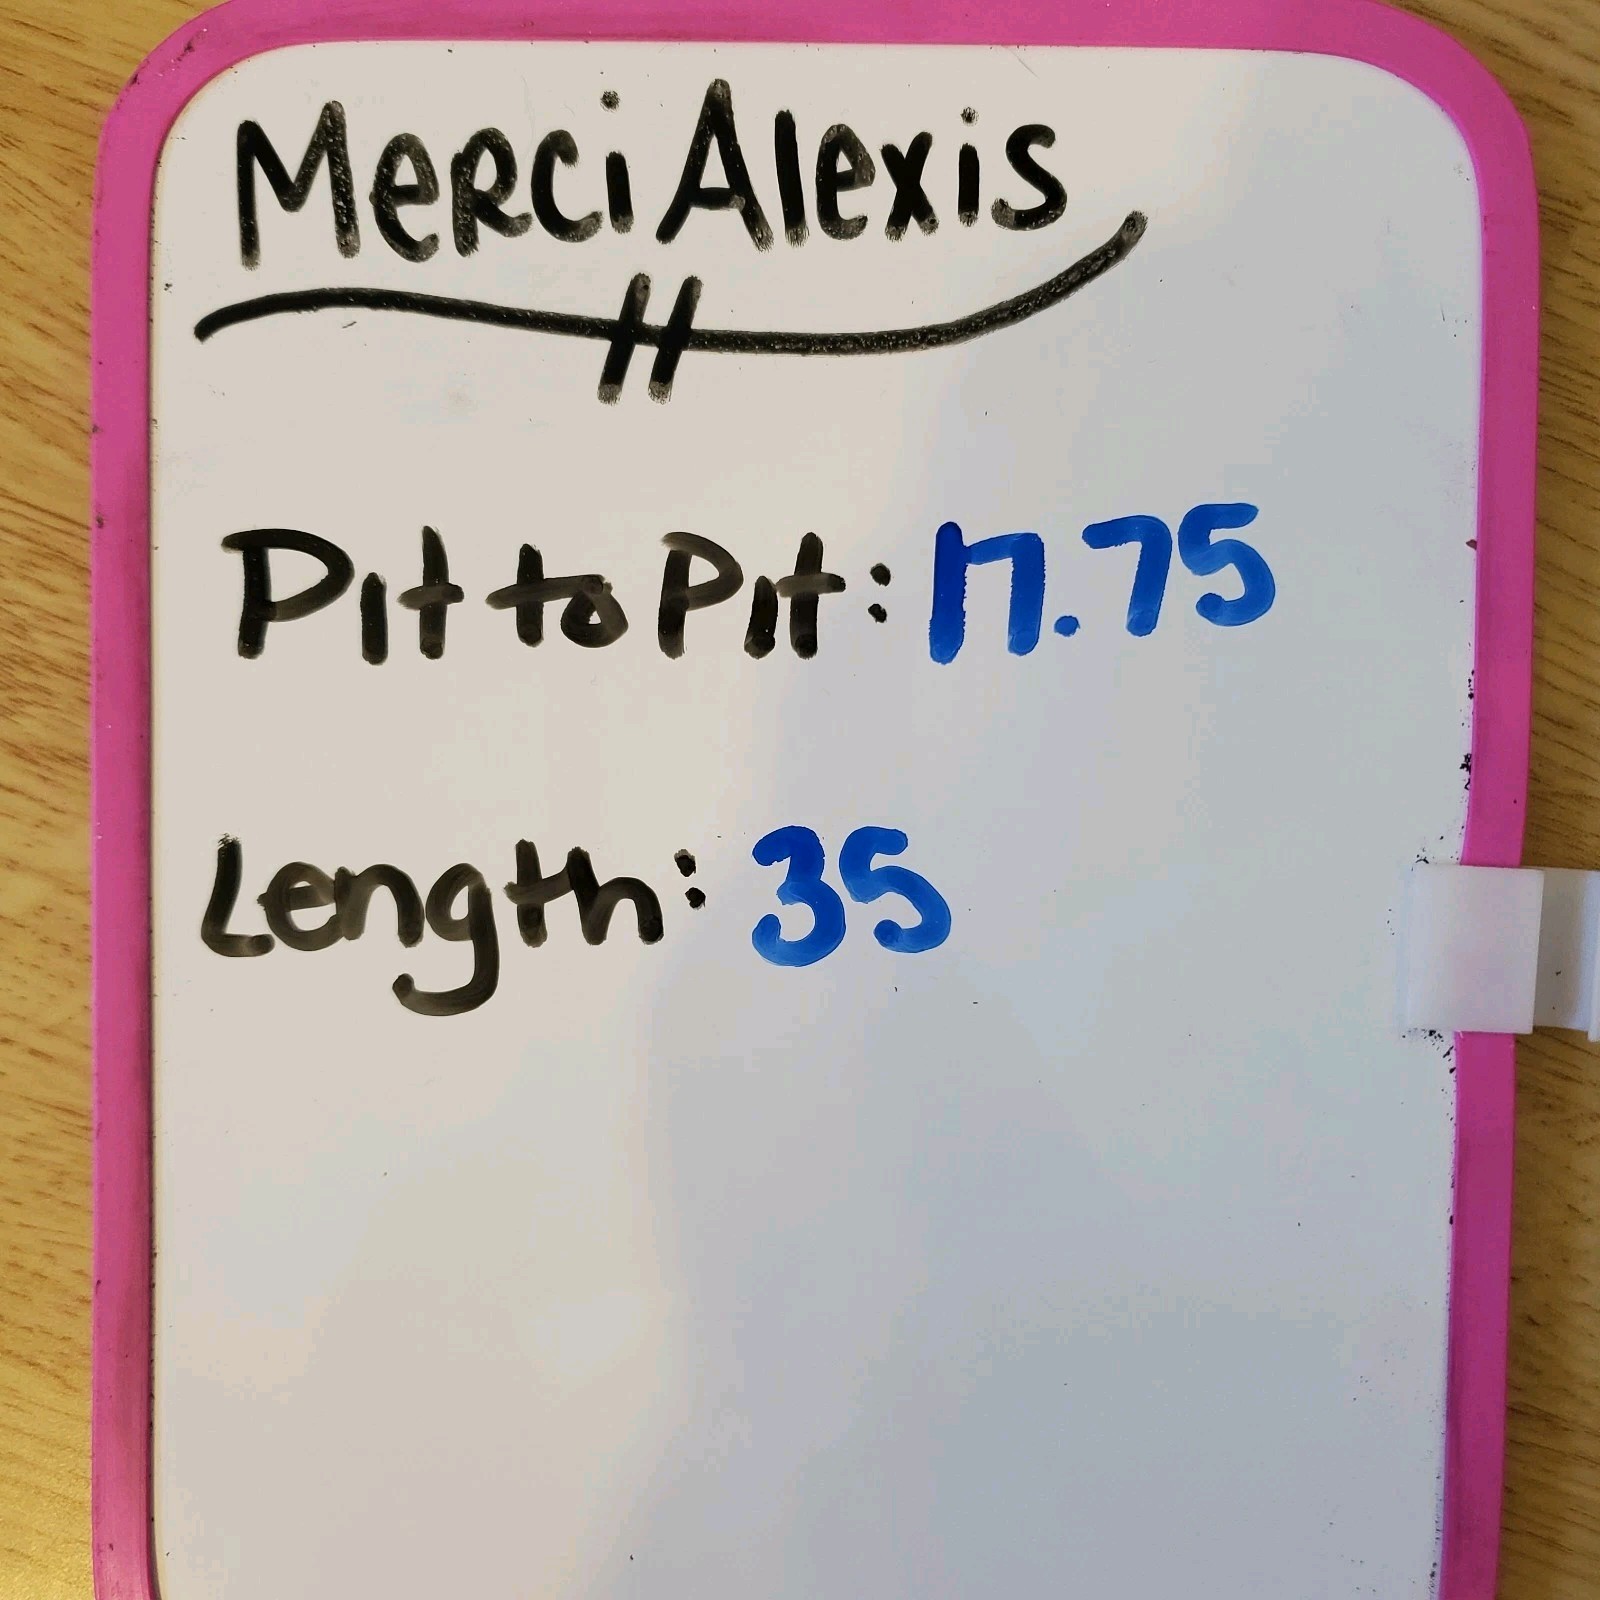 Merci Alexis
Pit to Pit: 17.75
Length: 35